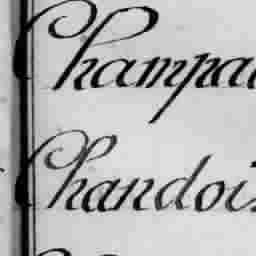 Champa
Chandois